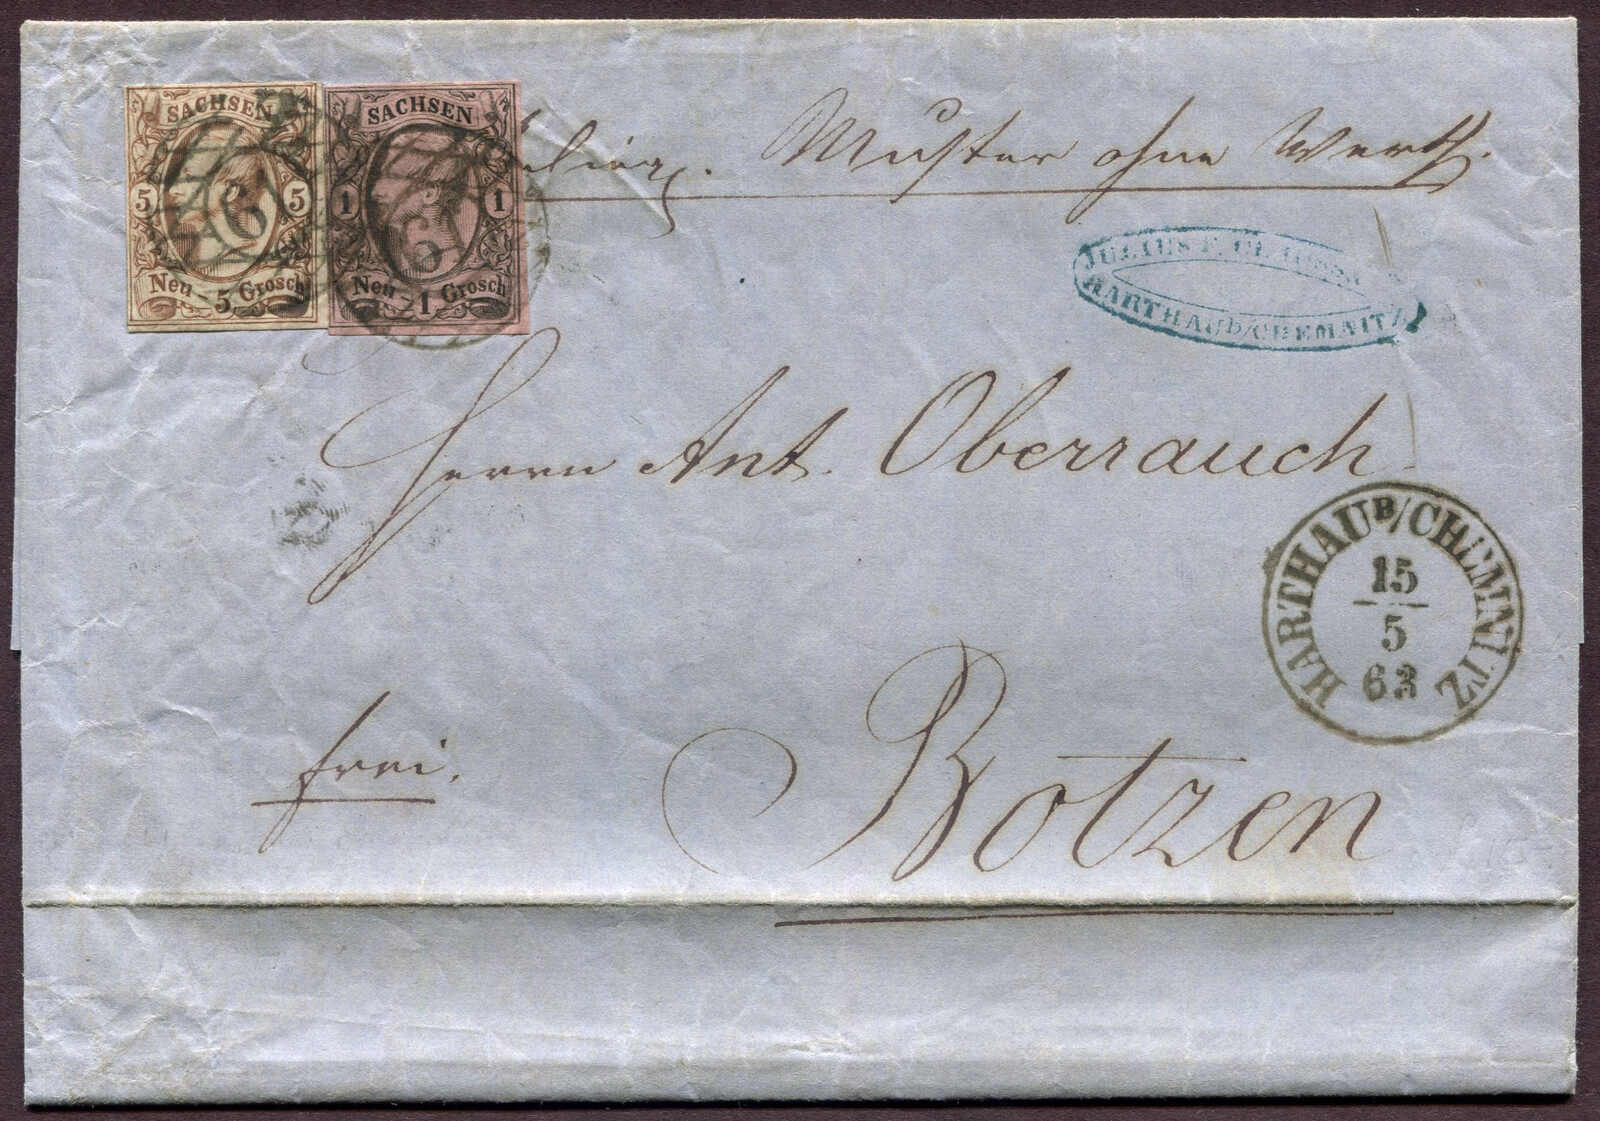 SACHSEN
5 5
Neu - 5 Grosch
SACHSEN
1 1
Neu - 1 Grosch
Muster ohne Werth.
JULIUS F.
HARTHAU b/CHEMNITZ
Herrn Ant. Oberrauch
HARTHAU B/CHEMNITZ
15
5
63
frei.
Botzen